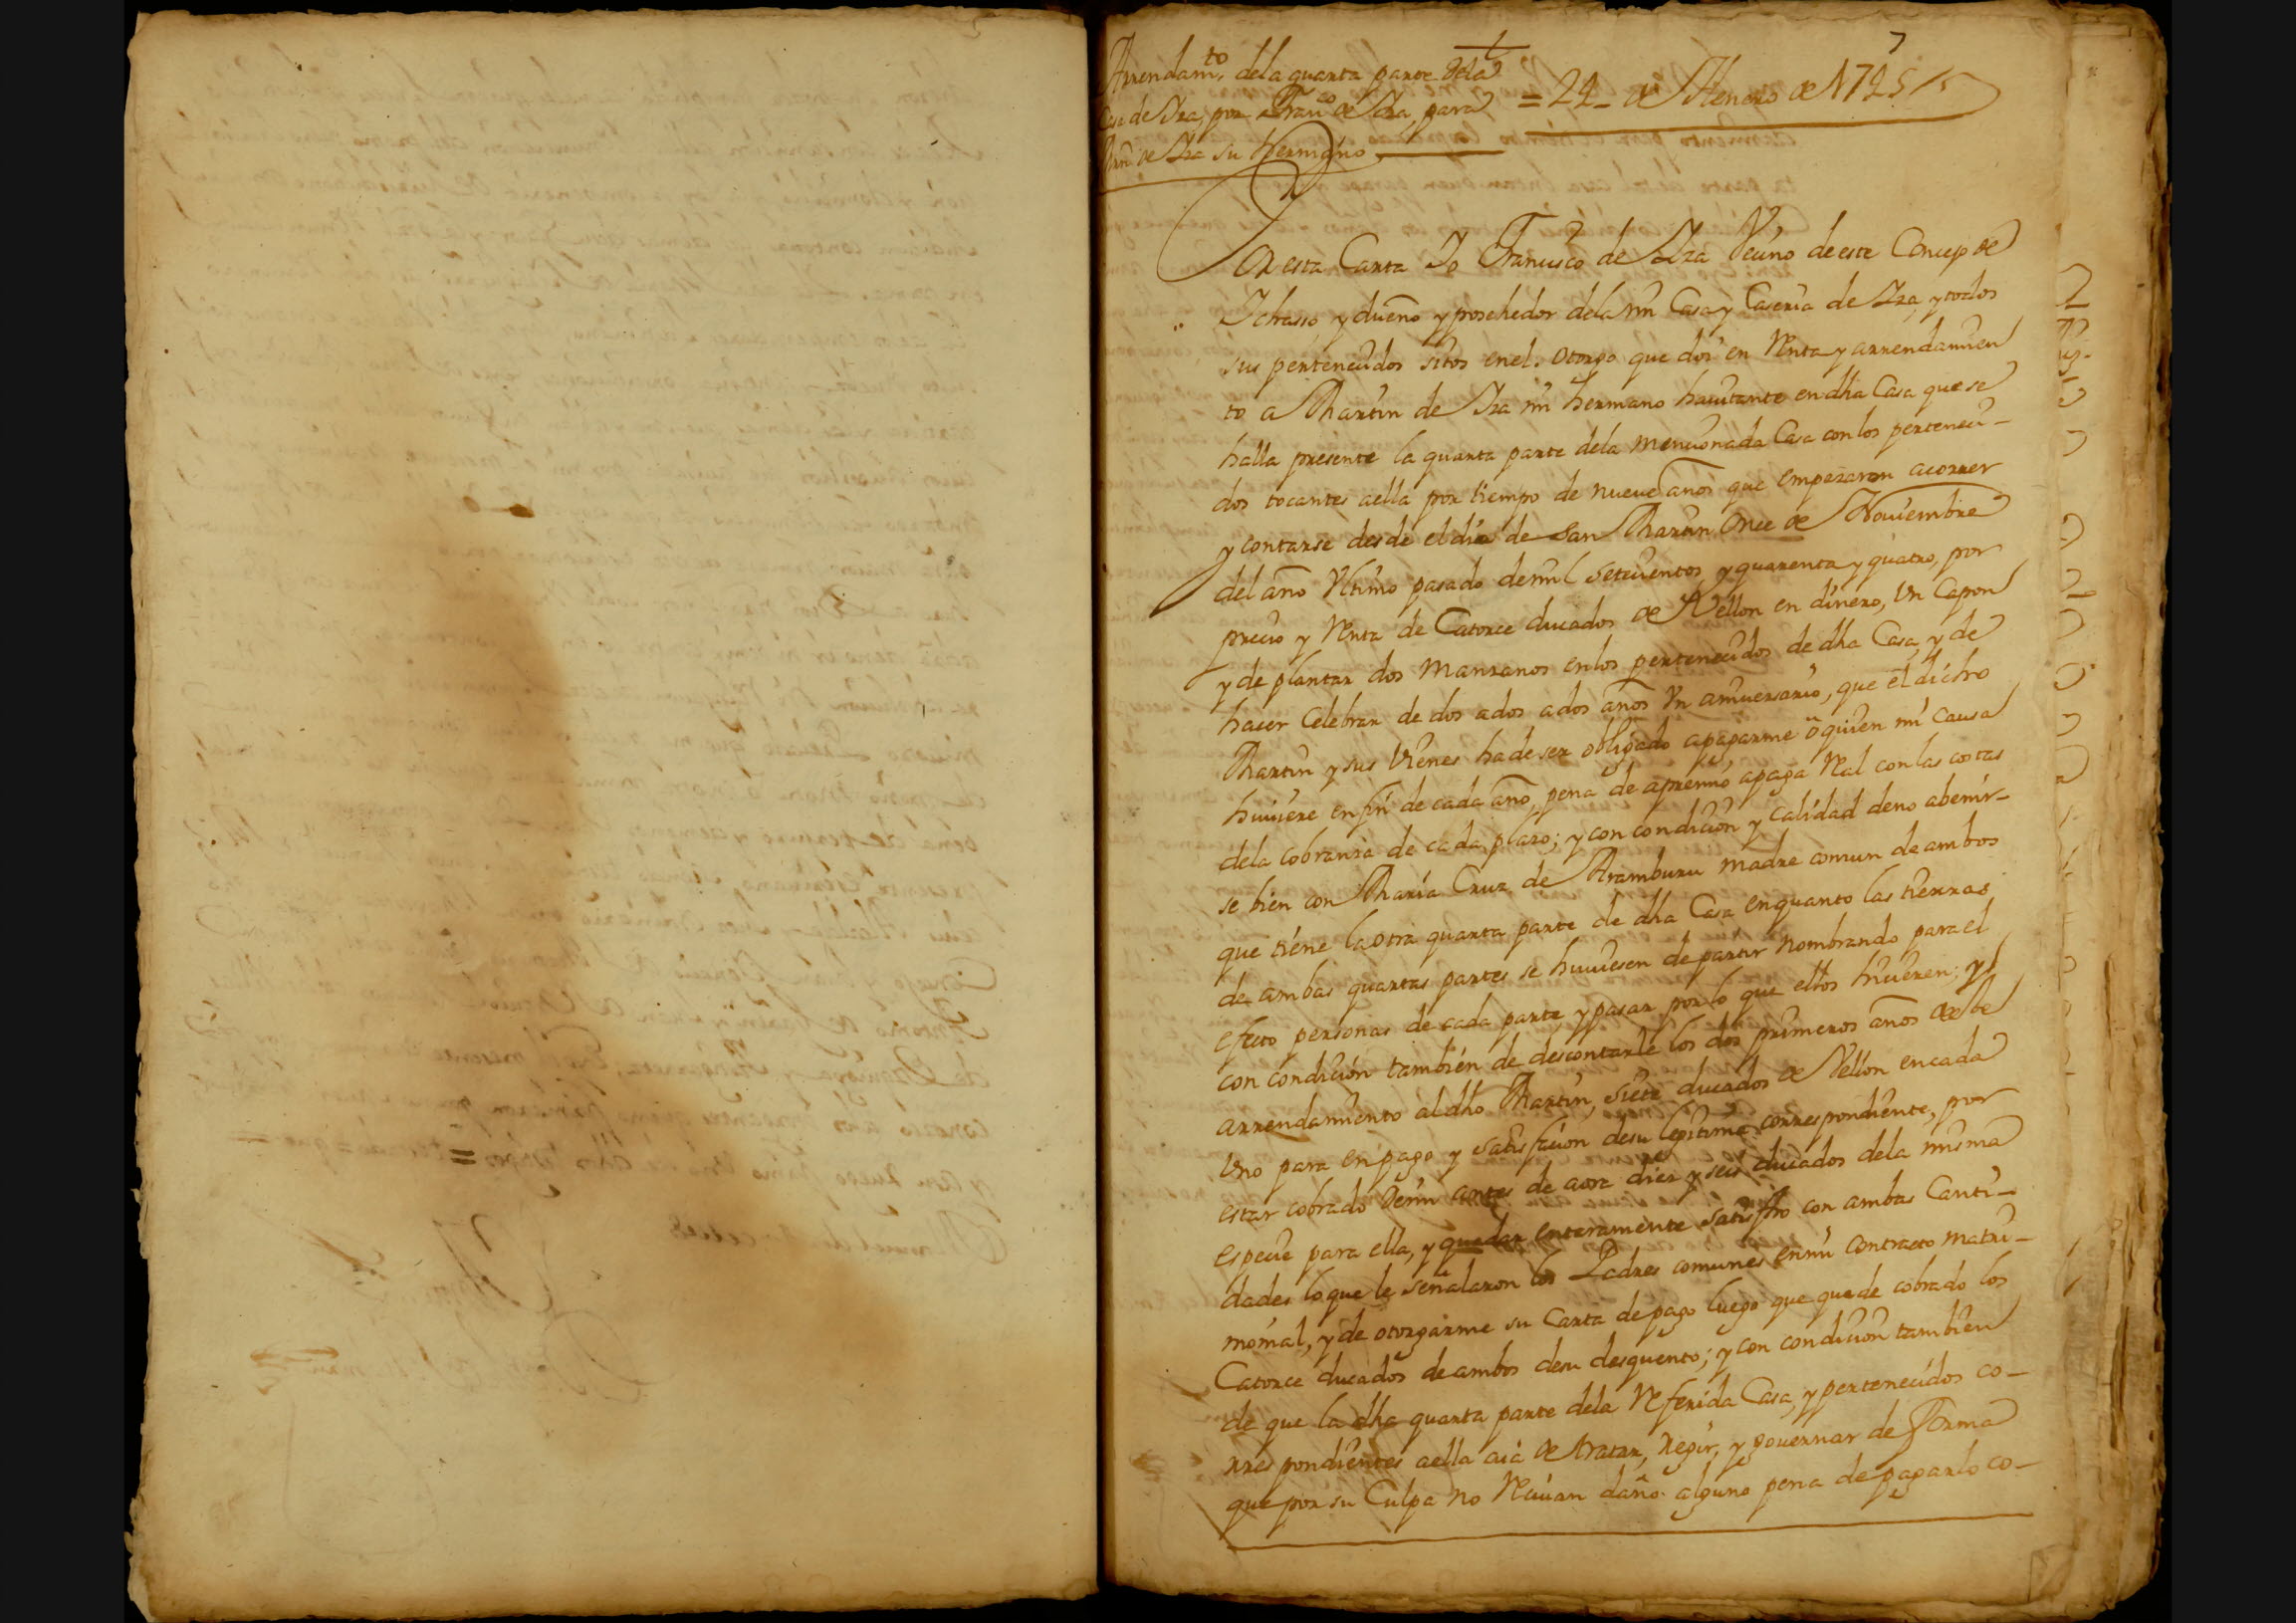 7
Arrendam.to dela quarta parte dela
Casa de Iza, por Fran.co de Iza, para
Mrn de Iza su hermano
= 24 - de Henero de 1745
Por esta Carta Yo Francisco de Iza Vecino de este Concejo de
Ichasso, y dueño y poschedor dela mi Casa y Caseria de Iza, y todos
sus pertenecidos sitos en el. Otorgo que doi en Renta y arrendamien
to a Martin de Iza mi hermano havitante en dha Casa que se
halla presente la quarta parte dela mencionada Casa con los perteneci-
dos tocantes aella por tiempo de nueve años que empezaron acorrer
y contarse desde el dia de San Martin Once de Noviembre
del año Vltimo pasado demil setecientos y quarenta y quatro, por
precio y Renta de Catorce ducados de Vellon en dinero, Un Capon
y de plantar dos Manzanos en los pertenecidos de dha Casa, y de
hacer Celebrar de dos ados ados años Vn aniversario, que el dicho
Martin y sus Vienes hade ser obligado apagarme ò quien mi Causa
huviere en fin de cada año, pena de apremio apaga Real con las costas
dela Cobranza de cada plazo; y con condicion y Calidad deno abenir-
se bien con Maria Cruz de Aramburu madre comun de ambos
que tiene la otra quarta parte de dha Casa enquanto las tierras
de ambas quartas partes se huviesen de partir nombrando para el
efecto personas de cada parte, y pasar por lo que ellos hicieren; y
con condición también de descontarle los dos primeros años de este
arrendamiento al dho Martin, siete ducados de Vellon encada
Uno para en pago y satisfacion desu lexitima correspondiente, por
estar cobrado demi antes de aora diez y seis ducados dela misma
especie para ella, y quedar enteramente satisfho con ambas Canti-
dades lo que le señalaron los Padres comunes enmi Contracto matri-
monial, y de otorgarme su Carta de pago luego que quede cobrado los
Catorce ducados de ambos desu desquento; y con condicion tambien
de que la dha quarta parte dela Referida Casa, y pertenecidos co-
rrespondientes aella aia de tratar, Regir, y governar de forma
que por su Culpa no Recivan daño alguno pena de pagarlo co-